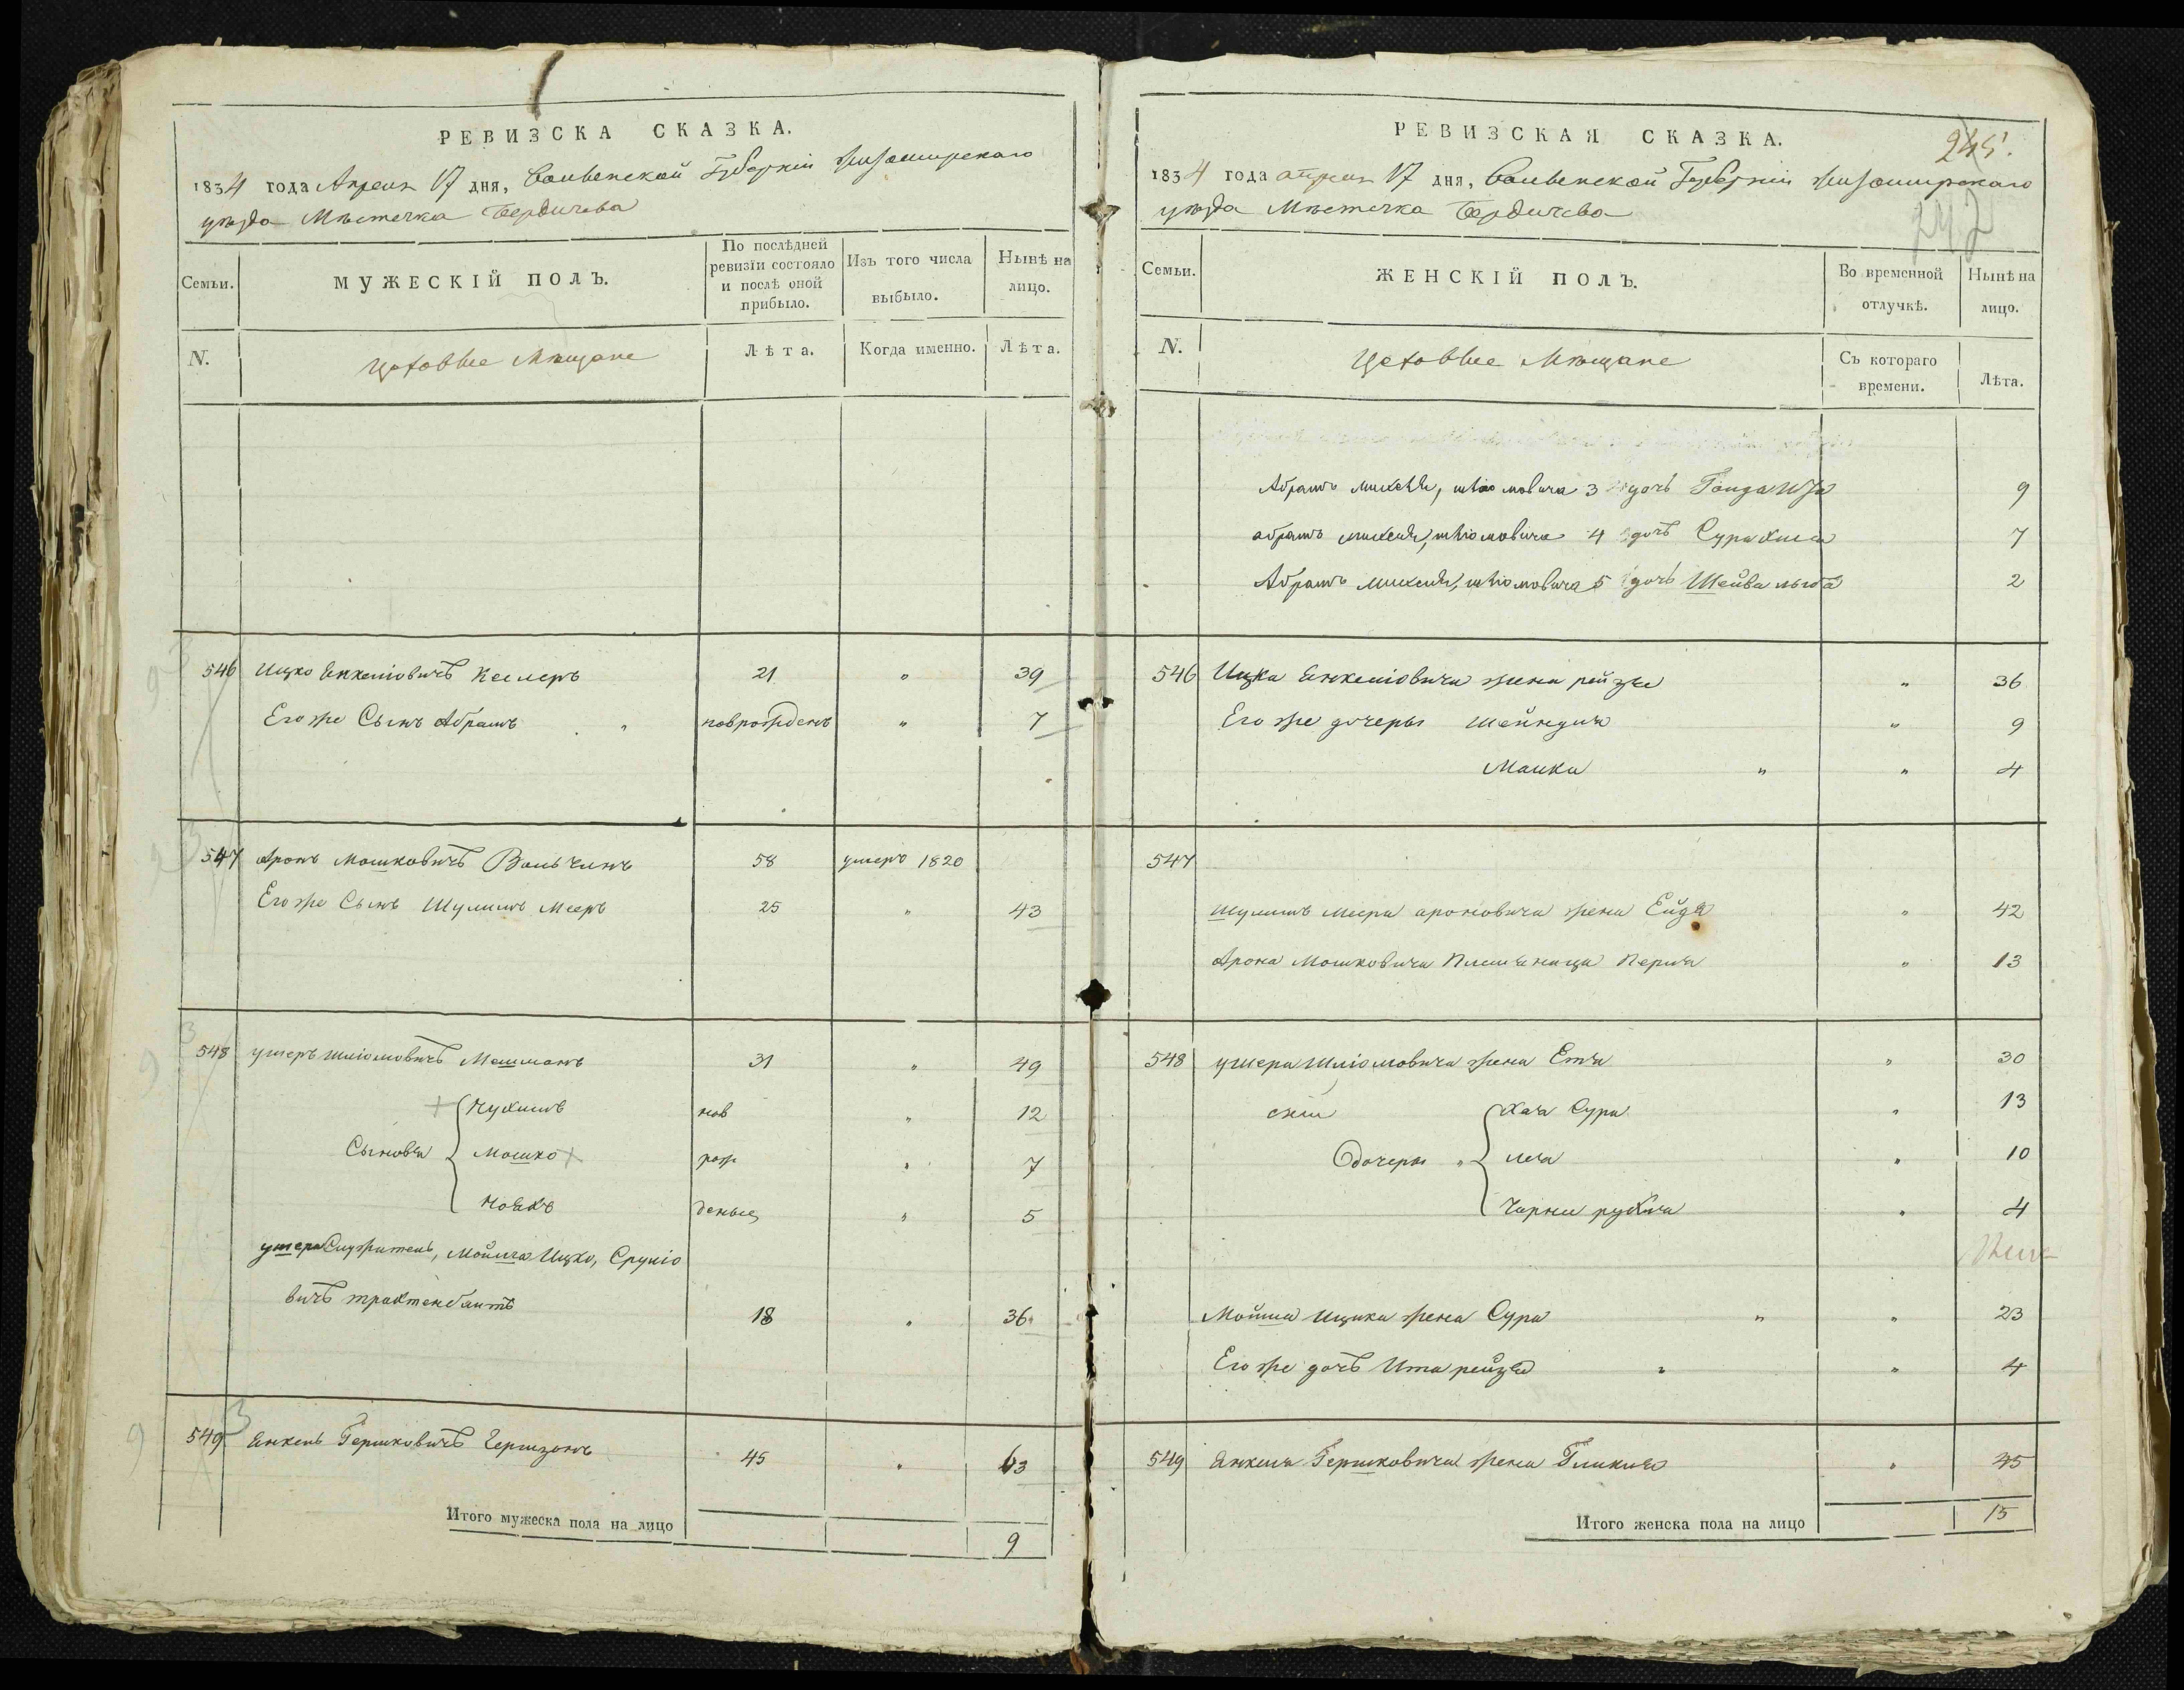 РЕВИЗСКА СКАЗКА.
1834 года Апреля 17 дня, Волынской Губерніи Житомирскаго
уѣзда Мѣстечка Бердичева
Семьи. МУЖЕСКІЙ ПОЛЪ. По послѣдней ревизіи состояло и послѣ оной прибыло. Изъ того числа выбыло. Нынѣ на лицо.
N. Цеховые Мѣщане Лѣта. Когда именно. Лѣта.
546 Ицко Янкелiовичъ Келлеръ 21 " 39
Его же Сынъ Абрамъ " новрожденъ " 7
547 Аронъ Мошковичъ Вольчинъ 58 умеръ 1820
Его же Сынъ Шулимъ Мееръ 25 " 43
548 ушеръ Шліомовичъ Мешманъ 31 " 49
Нухимъ нов " 12
Сыновья Мошко рож " 7
деные " 5
ушера Служитель, Мойша Ицко, Сруліо
вичъ трахтенбаитъ 18 " 36
549 Янкель Гершковичъ Гершзонъ 45 " 63
Итого мужеска пола на лицо 9
РЕВИЗСКАЯ СКАЗКА.
245.
1834 года апреля 17 дня, Волынской Губерніи Житомирскаго
уѣзда Мѣстечка Бердичева
242
Семьи. ЖЕНСКІЙ ПОЛЪ. Во временной отлучкѣ. Нынѣ на лицо.
N. Цеховые Мѣщане Съ котораго времени. Лѣта.
Абрамъ Михеля, шліомовича 3 дочь 9
абрамъ михеля, шліомовича 4 дочь 7
Абрамъ Михеля, шліомовича 5 дочь Шейва 2
546 Ицка Янкелiовича жена рейзя " 36
Его же дочеры Шейндля " 9
Малка " " 4
547
Шулимъ Меера ароновича жена Ейдя " 42
Арона Мошковича Племяница Перля " 13
548 ушера Шліомовича жена Етя " 30
Хая Сура " 13
дочеры " Лея " 10
Чарна рухля " 4
Мойша Ицика жена Сура " " 23
Его же дочъ Ита рейзя " " 4
549 Янкеля Гершковича жена Гликля " 45
Итого женска пола на лицо 15